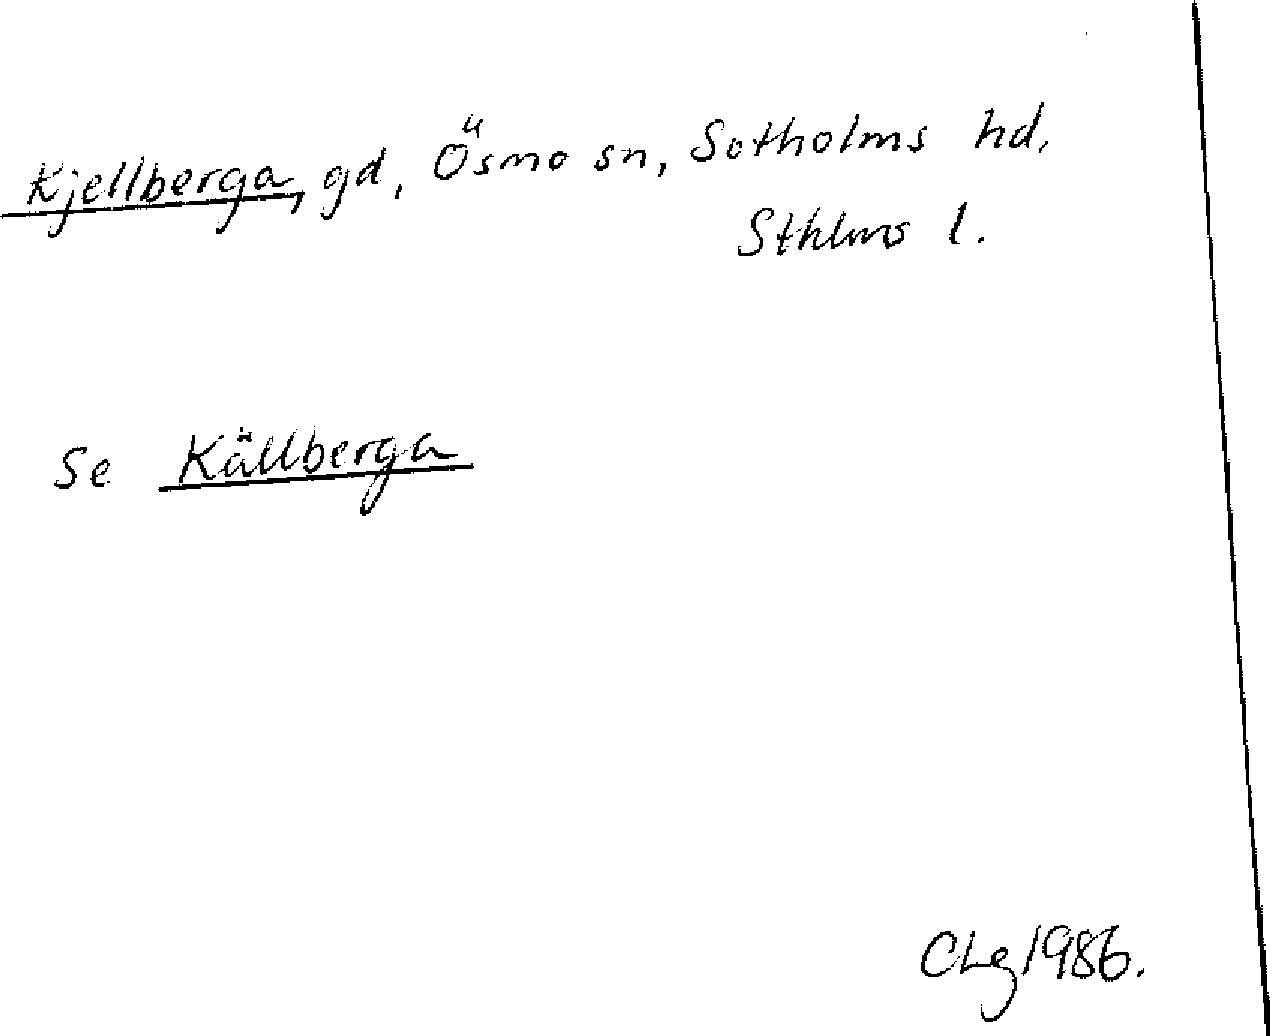 Kjellberga, gd, Ösmo sn, Sotholms hd,
Sthlms l.
Se Källberga
CLg 1986.